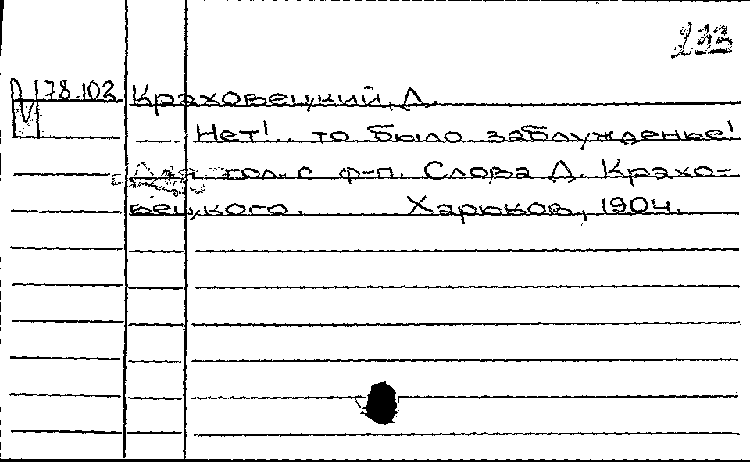 233
П 178.102 Краховецкий, Д.
Нет!.. то было заблужденье!
Для гол. с ф-п. Слова Д. Крахо-
вецкого. Харьков, 1904.